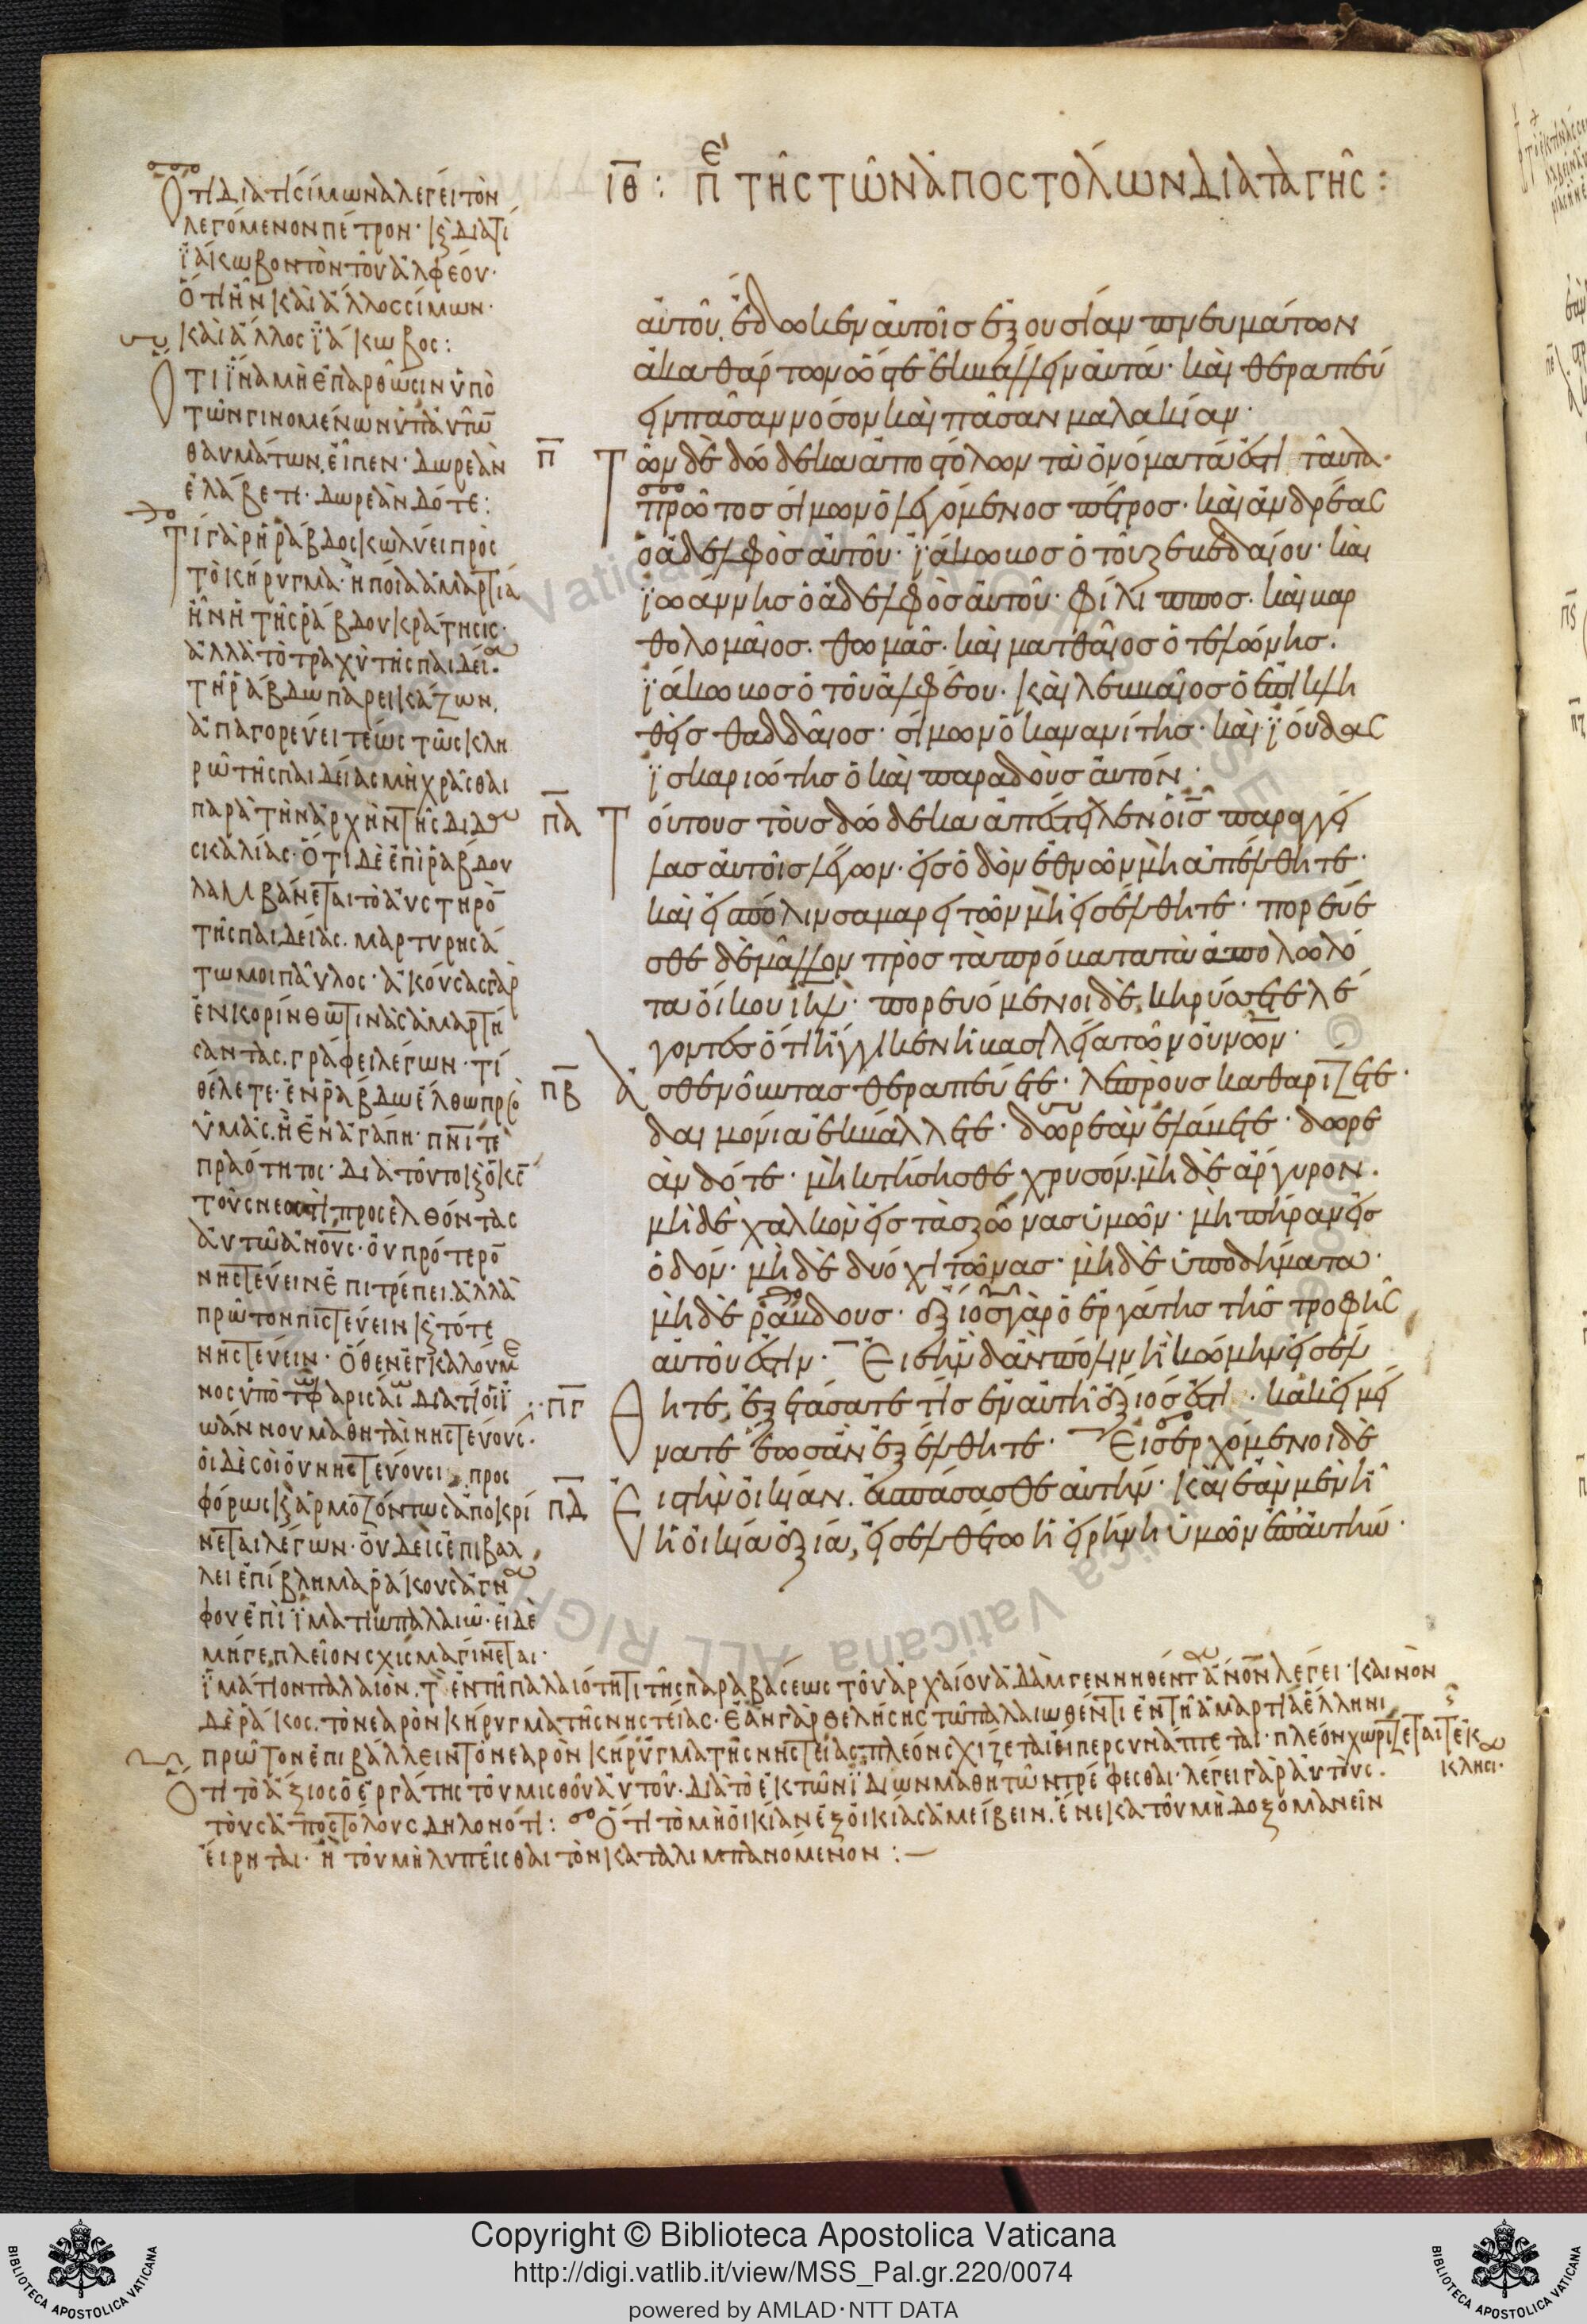 ιθ: πε τῆς τῶν ἀποστόλων διαταγῆς:
αὐτοῦ. ἔδωκεν αὐτοῖς ἐξουσίαν πνευμάτων
ἀκαθάρτων ὥστε ἐκβάλλειν αὐτά· καὶ θεραπεύ
ειν πᾶσαν νόσον καὶ πᾶσαν μαλακίαν·
π Τῶν δὲ δώδεκα ἀποστόλων τὰ ὀνόματά ἐστι ταῦτα·
πρῶτος σίμων ὁ λεγόμενος πέτρος· καὶ ἀνδρέας
ὁ ἀδελφὸς αὐτοῦ· ϊάκωβος ὁ τοῦ ζεβεδαίου· καὶ
ϊωάννης ὁ ἀδελφὸς αὐτοῦ· φίλιππος· καὶ βαρ
θολομαῖος· θωμᾶς· καὶ ματθαῖος ὁ τελώνης.
ϊάκωβος ὁ τοῦ ἀλφέου· καὶ λεββαῖος ὁ ἐπικλη
θεὶς θαδδαῖος· σίμων ὁ κανανίτης· καὶ ϊούδας
ϊσκαριώτης ὁ καὶ παραδοὺς αὐτόν·
πα Τούτους τοὺς δώδεκα ἀπέστειλεν ὁ ις παραγγεί
λας αὐτοῖς λέγων· εἰς ὁδὸν ἐθνῶν μὴ ἀπέλθητε·
καὶ εἰς πόλιν σαμαρειτῶν μὴ εἰσέλθητε· πορεύε
σθε δὲ μᾶλλον πρὸς τὰ πρόβατα τὰ ἀπολωλό
τα οἴκου ιηλ· πορευόμενοι δὲ, κηρύσσετε λέ
γοντες ὅτι ἤγγικεν ἡ βασιλεία τῶν οὐνῶν·
πβ ἀσθενοῦντας θεραπεύετε· λεπροὺς καθαρίζετε·
δαιμόνια ἐκβάλλετε· δωρεὰν ἐλάβετε· δωρε
ὰν δότε· μὴ κτήσησθε χρυσόν· μὴ δὲ ἄργυρον.
μὴ δὲ χαλκὸν εἰς τὰς ζώνας ὑμῶν· μὴ πήραν εἰς
ὁδόν· μὴ δὲ δύο χιτῶνας· μὴ δὲ ὑποδήματα·
μὴ δὲ ῥάβδους· ἄξιος γὰρ ὁ ἐργάτης τῆς τροφῆς
αὐτοῦ ἐστιν· Εἰς ἣν δ' ἂν πόλιν ἢ κώμην εἰσέλ
πγ θητε, ἐξετάσατε τίς ἐν αὐτῆ ἄξιός ἐστι· κακεῖ μεί
νατε ἕως ἂν ἐξέλθητε· Εἰσερχόμενοι δὲ
πδ εἰς τὴν οἰκίαν. ἀσπάσασθε αὐτήν· καὶ ἐὰν μὲν ἦ
ἡ οἰκία ἀξία, εἰσελθέτω ἡ εἰρήνη ὑμῶν ἐπ' αὐτήν·
Ὅτι διατί σίμωνα λέγει τὸν
λεγόμενον πέτρον· κ διατί
ϊάκωβον τὸν τοῦ ἀλφέου·
ὅτι ἦν καὶ ἄλλος σίμων·
καὶ ἄλλος ϊάκωβος:
Ὅτι ϊνα μὴ ἐπαρθῶσιν ὑπὸ
τῶν γινομένων ὑπ' αυτῶ
θαυμάτων, εἶπεν· δωρεὰν
ἐλάβετε· δωρεὰν δότε:
Τί γὰρ ἡ ῥάβδος κωλύει πρὸς
τὸ κήρυγμα· ἢ ποία ἁμαρτία
ἦν ἡ τῆς ῥάβδου κράτησις·
ἀλλὰ τὸ τραχὺ τῆς παιδεί
τῆ ῥάβδω παρεικάζων,
ἀπαγορεύει τέως τῶ σκλη
ρῶ τῆς παιδείας μὴ χρᾶσθαι
παρὰ τὴν ἀρχὴν τῆς διδα
σκαλίας· ὅτι δὲ ἐπὶ ῥάβδου
λαμβάνεται τὸ αὐστηρὸ
τῆς παιδείας. μαρτυρησά
τω μοι παῦλος· ἀκούσας γὰρ
ἐν κορίνθω τινὰς ἁμαρτή
σαντας. γράφει λέγων· τί
θέλετε· ἐν ῥάβδω ἔλθω πρὸ
ὑμᾶς. ἢ ἐν ἀγάπη· πνι τὲ
πραότητος· διὰ τοῦτο κ ὁ κς
τοὺς νεωστὶ προσελθόντας
αὐτῶ ανους· οὐ πρότερο
νηστεύειν ἐπιτρέπει. ἀλλὰ
πρῶτον πιστεύειν κ τότε
νηστεύειν· ὅθεν ἐγκαλούμε
νος ὑπὸ τω φαρισαίω διατί οἱ ϊ
ωάννου μαθηταὶ νηστεύους·
οἱ δὲ σοὶ οὐ νηστεύουσι, προς
φόρως κ ἁρμοζόντως ἀποκρί
νεται λέγων· οὐδεὶς ἐπιβάλ
λει ἐπίβλημα ῥάκους ἀγνά
φου ἐπὶ ϊματίω παλαιῶ· εἰ δὲ
μήγε, πλεῖον σχίσμα γίνεται·
ϊμάτιον παλαιὸν. τ ἐν τῆ παλαιότητι τῆς παραβάσεως τοῦ ἀρχαίου ἀδὰμ γεννηθέντα ανον λέγει· καινὸν
δὲ ῥάκος. τὸ νεαρὸν κήρυγμα τῆς νηστείας· ἐὰν γὰρ θελήσης τῶ παλαιωθέντι ἐν τῆ ἁμαρτία ἕλληνι
πρῶτον ἐπιβάλλειν τὸ νεαρὸν κήρυγμα τῆς νηστείας, πλέον σχίζεται εἴπερ συνάπτεται· πλέον χωρίζεται τ ἐκ
κλησι·
Ὅτι τὸ ἄξιος ὁ ἐργάτης τοῦ μισθοῦ αὐτοῦ· διὰ τὸ ἐκ τῶν ϊδίων μαθητῶν τρέφεσθαι· λέγει γὰρ αὐτοὺς.
τοὺς ἀποστόλους δηλονότι: Ὅτι τὸ μὴ οἰκίαν ἐξ οἰκίας ἀμείβειν. ἕνεκα τοῦ μὴ δοξομανεῖν
εἴρηται· ἢ τοῦ μὴ λυπεῖσθαι τὸν καταλιμπανόμενον:
Copyright © Biblioteca Apostolica Vaticana
http://digi.vatlib.it/view/MSS_Pal.gr.220/0074
powered by AMLAD·NTT DATA
BIBLIOTECA APOSTOLICA VATICANA
BIBLIOTECA APOSTOLICA VATICANA